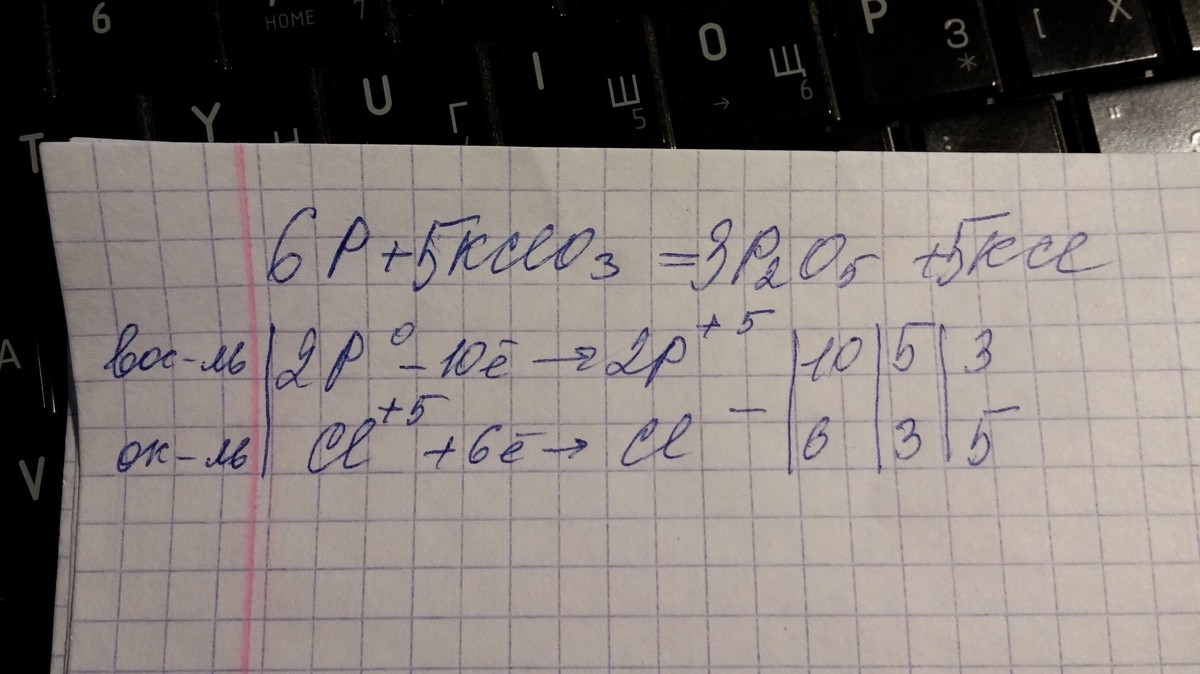 6 HOME 7
T Y Н U Г I Ш 5 O → Щ 6 P З * [ Х "
6P + 5KClO₃ = 3P₂O₅ + 5KCl
A вос-ль | 2P⁰ - 10ē → 2P⁺⁵ | 10 | 5 | 3
V ок-ль | Cl⁺⁵ + 6ē → Cl⁻ | 6 | 3 | 5